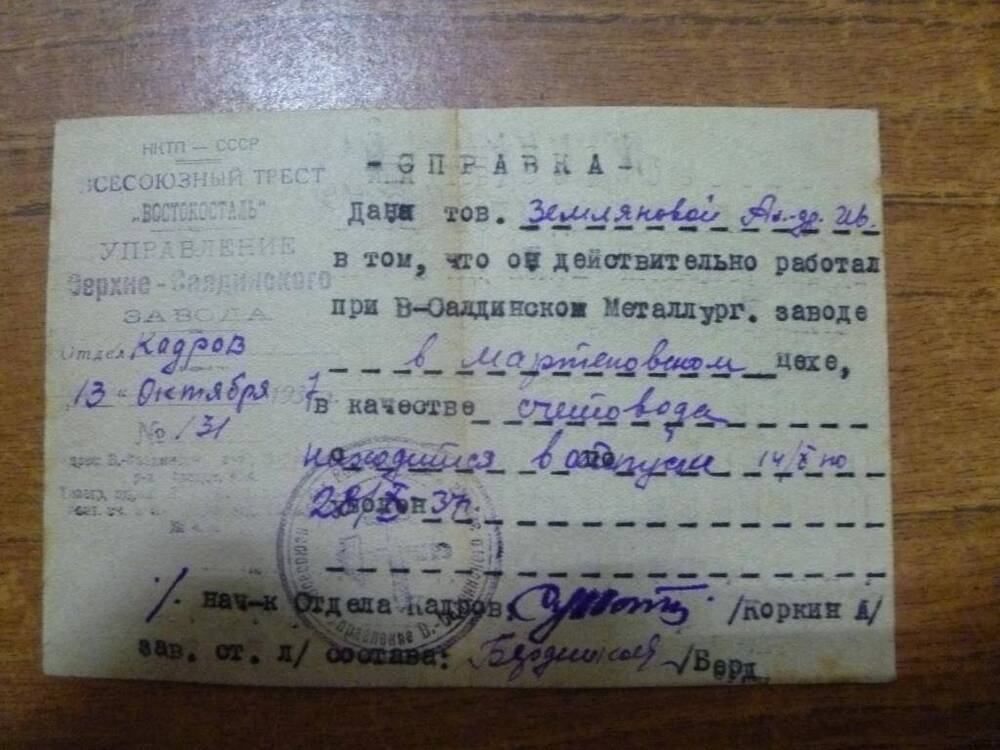 НКТП — СССР
ВСЕСОЮЗНЫЙ ТРЕСТ
„ВОСТОКОСТАЛЬ"
УПРАВЛЕНИЕ
Верхне-Салдинского
ЗАВОДА
Отдел Кадров
„13" Октября 1937
№ 131
-СПРАВКА-
Дана тов. Земляновой Ал-др. Ив.
в том, что он действительно работал
при В-Салдинском Металлург. заводе
в мартеновском цехе,
в качестве счетовода
находится в отпуске 14/X по
28/X 37г.
/. нач-к Отдела Кадров /Коркин А/
зав. ст. л/ состава: /Берд